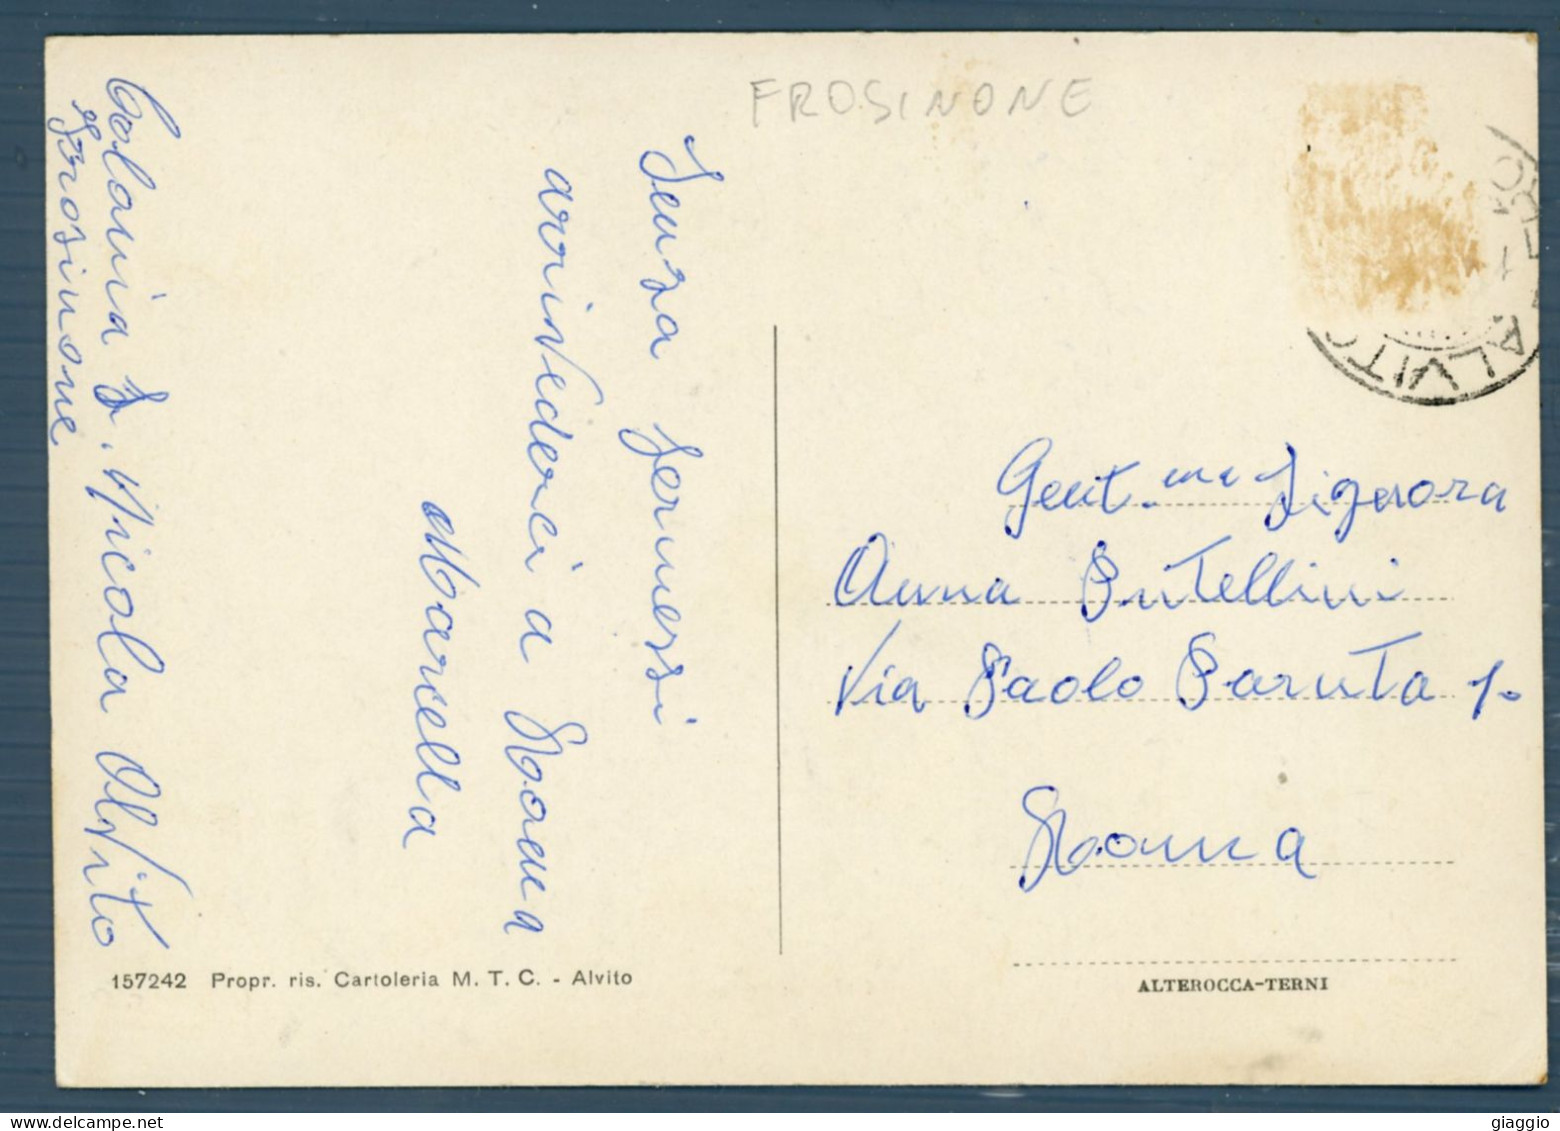 FROSINONE
Colonia S. Nicola Alvito
Frosinone
Senza fermessi
arrivederci a Roma
Marcella
ALVITO
Gent.ma Signora
Anna
Via Paolo Paruta
Roma
157242 Propr. ris. Cartoleria M. T. C. - Alvito
ALTEROCCA-TERNI
giaggio